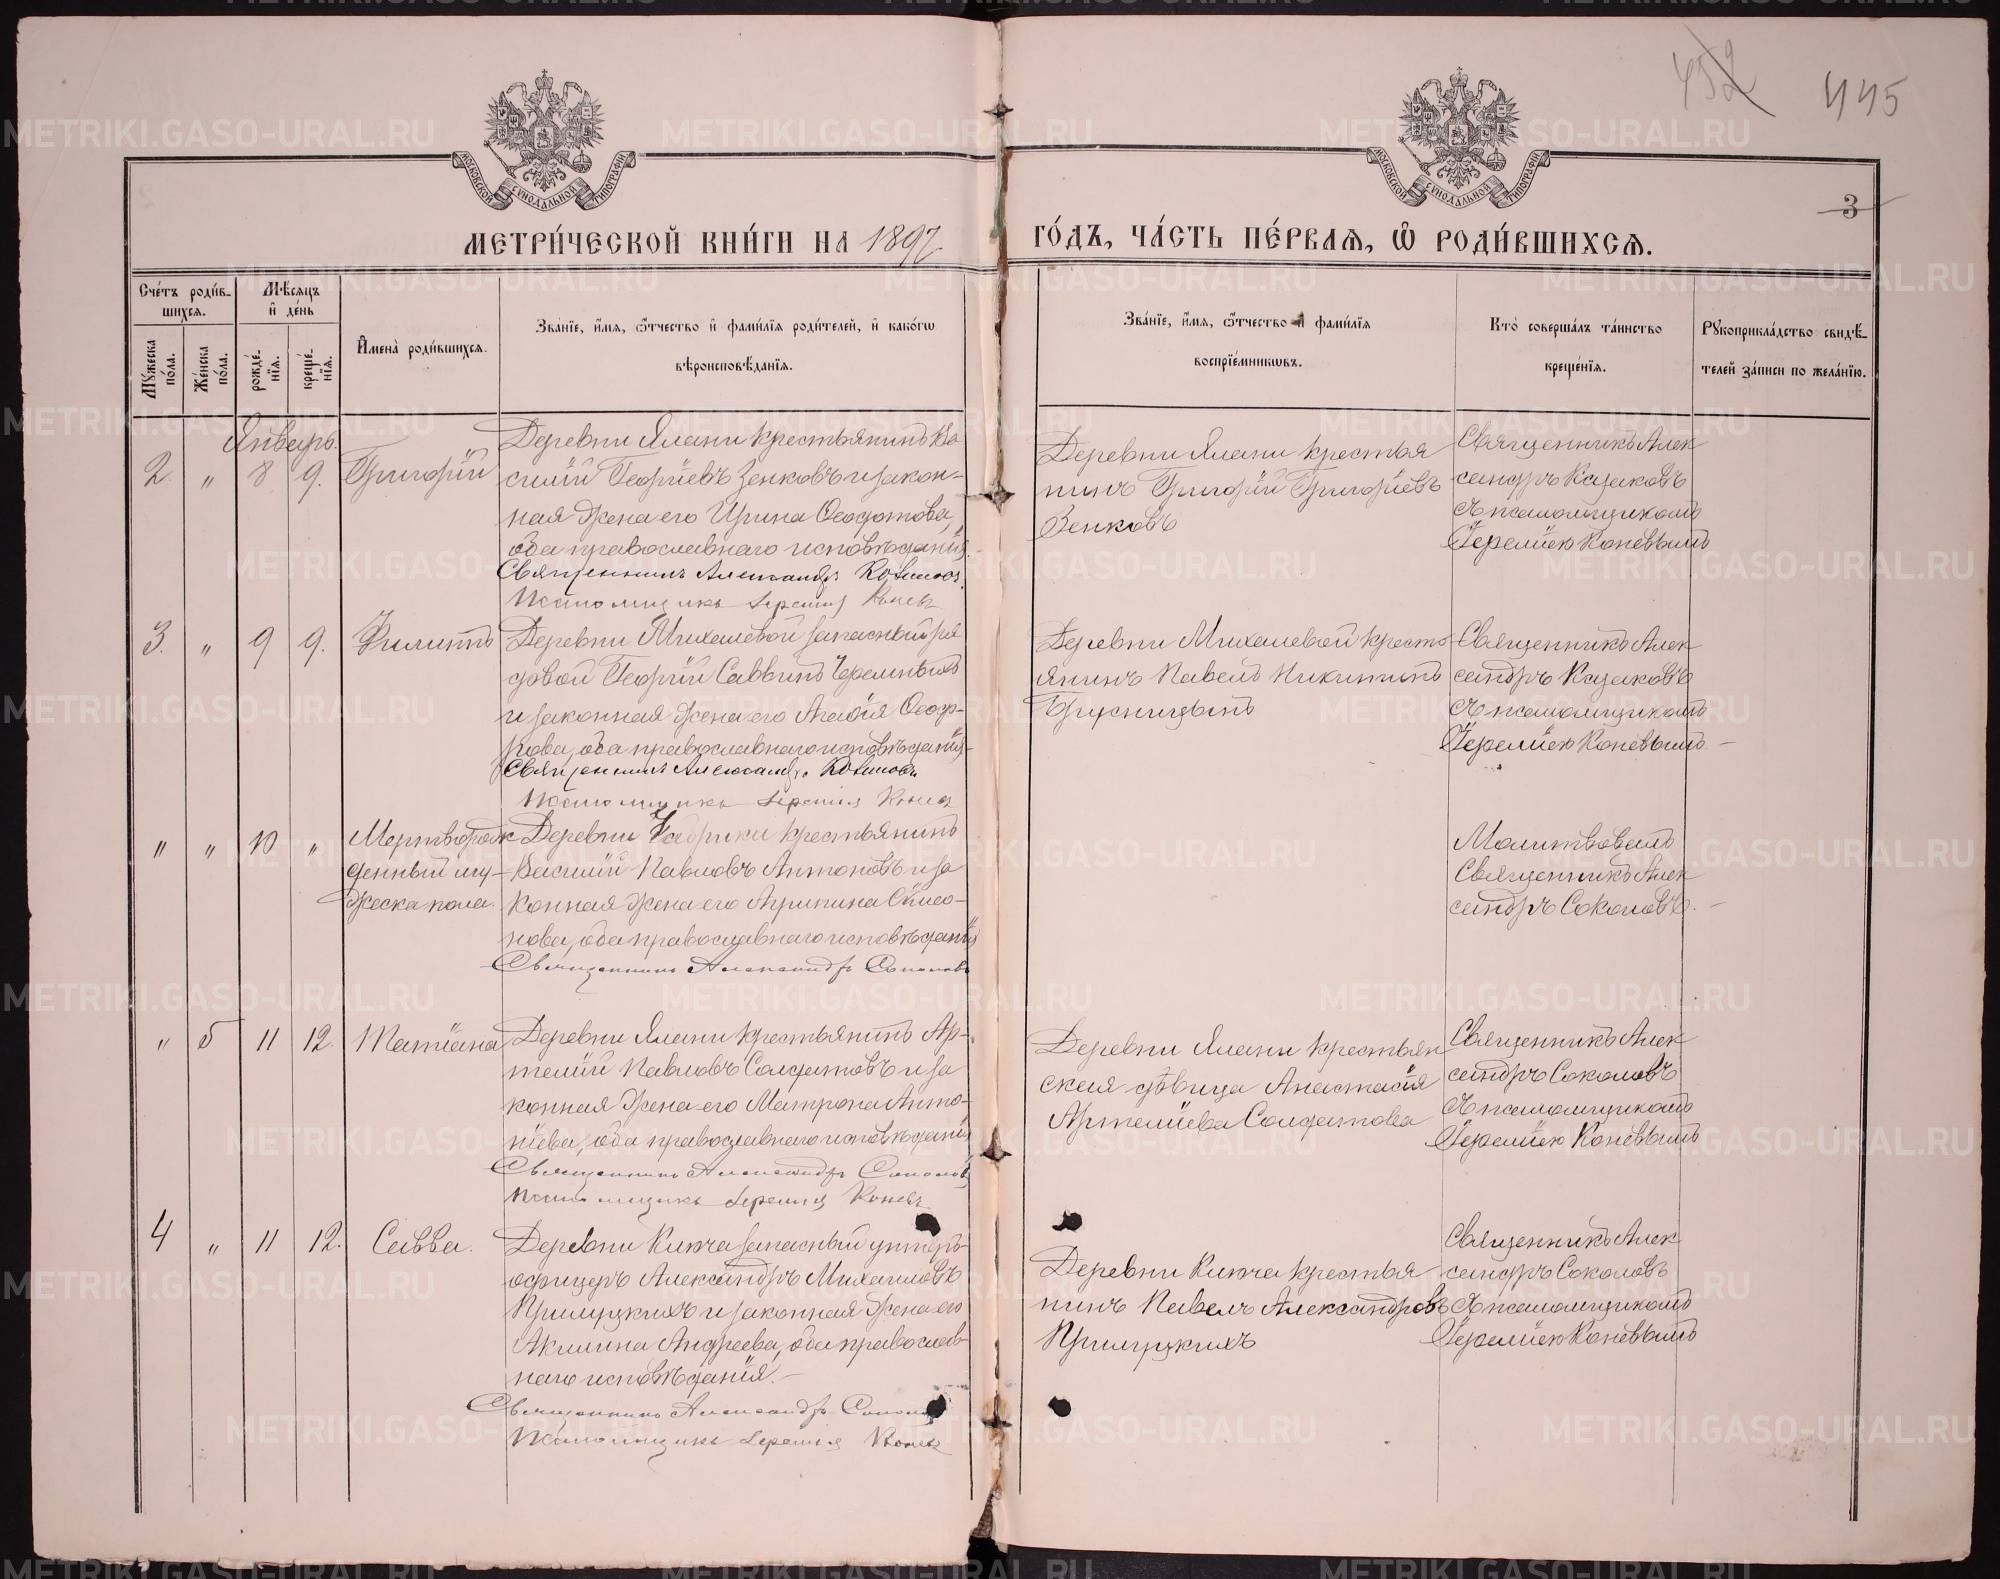 452
445
МОСКОВСКОЙ СѴНОДАЛЬНОЙ ТИПОГРАФІИ
МОСКОВСКОЙ СѴНОДАЛЬНОЙ ТИПОГРАФІИ
3
МЕТРИ́ЧЕСКОЙ КНИ́ГИ НА 1897 ГО́ДЪ, ЧА́СТЬ ПЕ́РВАѦ, Ѡ҆ РОДИ́ВШИХСѦ.
Сче́тъ роди́в-
шихсѧ.
Мѣ́сѧцъ
и҆ де́нь
Мꙋ́жеска
по́ла.
Же́нска
по́ла.
рожде́-
нїѧ.
креще́-
нїѧ.
И҆мена̀ роди́вшихсѧ.
Зва́нїе, и҆́мѧ, ѻ҆́тчество и҆ фами́лїѧ роди́телей, и҆ како́гѡ
вѣроисповѣ́данїѧ.
Зва́нїе, и҆́мѧ, ѻ҆́тчество и҆ фами́лїѧ
воспрїе́мникѡвъ.
Кто̀ соверша́лъ та́инство
креще́нїѧ.
Рꙋкоприкла́дство свидѣ́-
телей за́писи по жела́нїю.
Январь.
2 " 8 9. Григорій
Деревни Ялани крестьянинъ Ва
силій Георгіевъ Зенковъ и закон-
ная жена его Ирина Ѳеодотова,
оба православнаго исповѣданія.
Священникъ Александръ Казаковъ
Псаломщикъ Іеремія Коневъ
Деревни Ялани крестья
нинъ Григорій Григоріевъ
Зенковъ
Священникъ Алек
сандръ Казаковъ
съ псаломщикомъ
Іереміею Коневымъ
3. " 9 9. Филиппъ
Деревни Михалевой запасный ря
довой Георгій Саввинъ Черемныхъ
и законная жена его Агаѳія Ѳеод-
рова, оба православнаго исповѣданія-
Священникъ Александръ Казаковъ
Псаломщикъ Іеремія Коневъ
Деревни Михалевой кресть-
янинъ Павелъ Никитинъ
Брусницынъ
Священникъ Алек
сандръ Казаковъ
съ псаломщикомъ
Іереміею Коневымъ-
" " 10 " Мертворож
денный му-
жеска пола.
Деревни крестьянинъ
Василій Павловъ Антоновъ и за
конная жена его Агрипина Симео-
нова, оба православнаго исповѣданія
Священникъ Александръ Соколовъ
Молитвовалъ
Священникъ Алек
сандръ Соколовъ.-
" 5 11 12. Татіана
Деревни Ялани крестьянинъ Ар-
темій Павловъ Солдатовъ и за
конная жена его Матрона Анто-
ніева, оба православнаго исповѣданія
Священникъ Александръ Соколовъ
Псаломщикъ Іеремія Коневъ
Деревни Ялани крестьян
ская дѣвица Анастасія
Артеміева Солдатова
Священникъ Алек
сандръ Соколовъ
съ псаломщикомъ
Іереміею Коневымъ
4 " 11 12. Савва.
Деревни Ключа запасный унтеръ-
офицеръ Александръ Михаиловъ
Прилуцкихъ и законная жена его
Акилина Андреева, оба православ-
наго исповѣданія.-
Священникъ Александръ Соколовъ
Псаломщикъ Іеремія Коневъ
Деревни Ключа крестья
нинъ Павелъ Александровъ
Прилуцкихъ
Священникъ Алек
сандръ Соколовъ
съ псаломщикомъ
Іереміею Коневымъ
METRIKI.GASO-URAL.RU